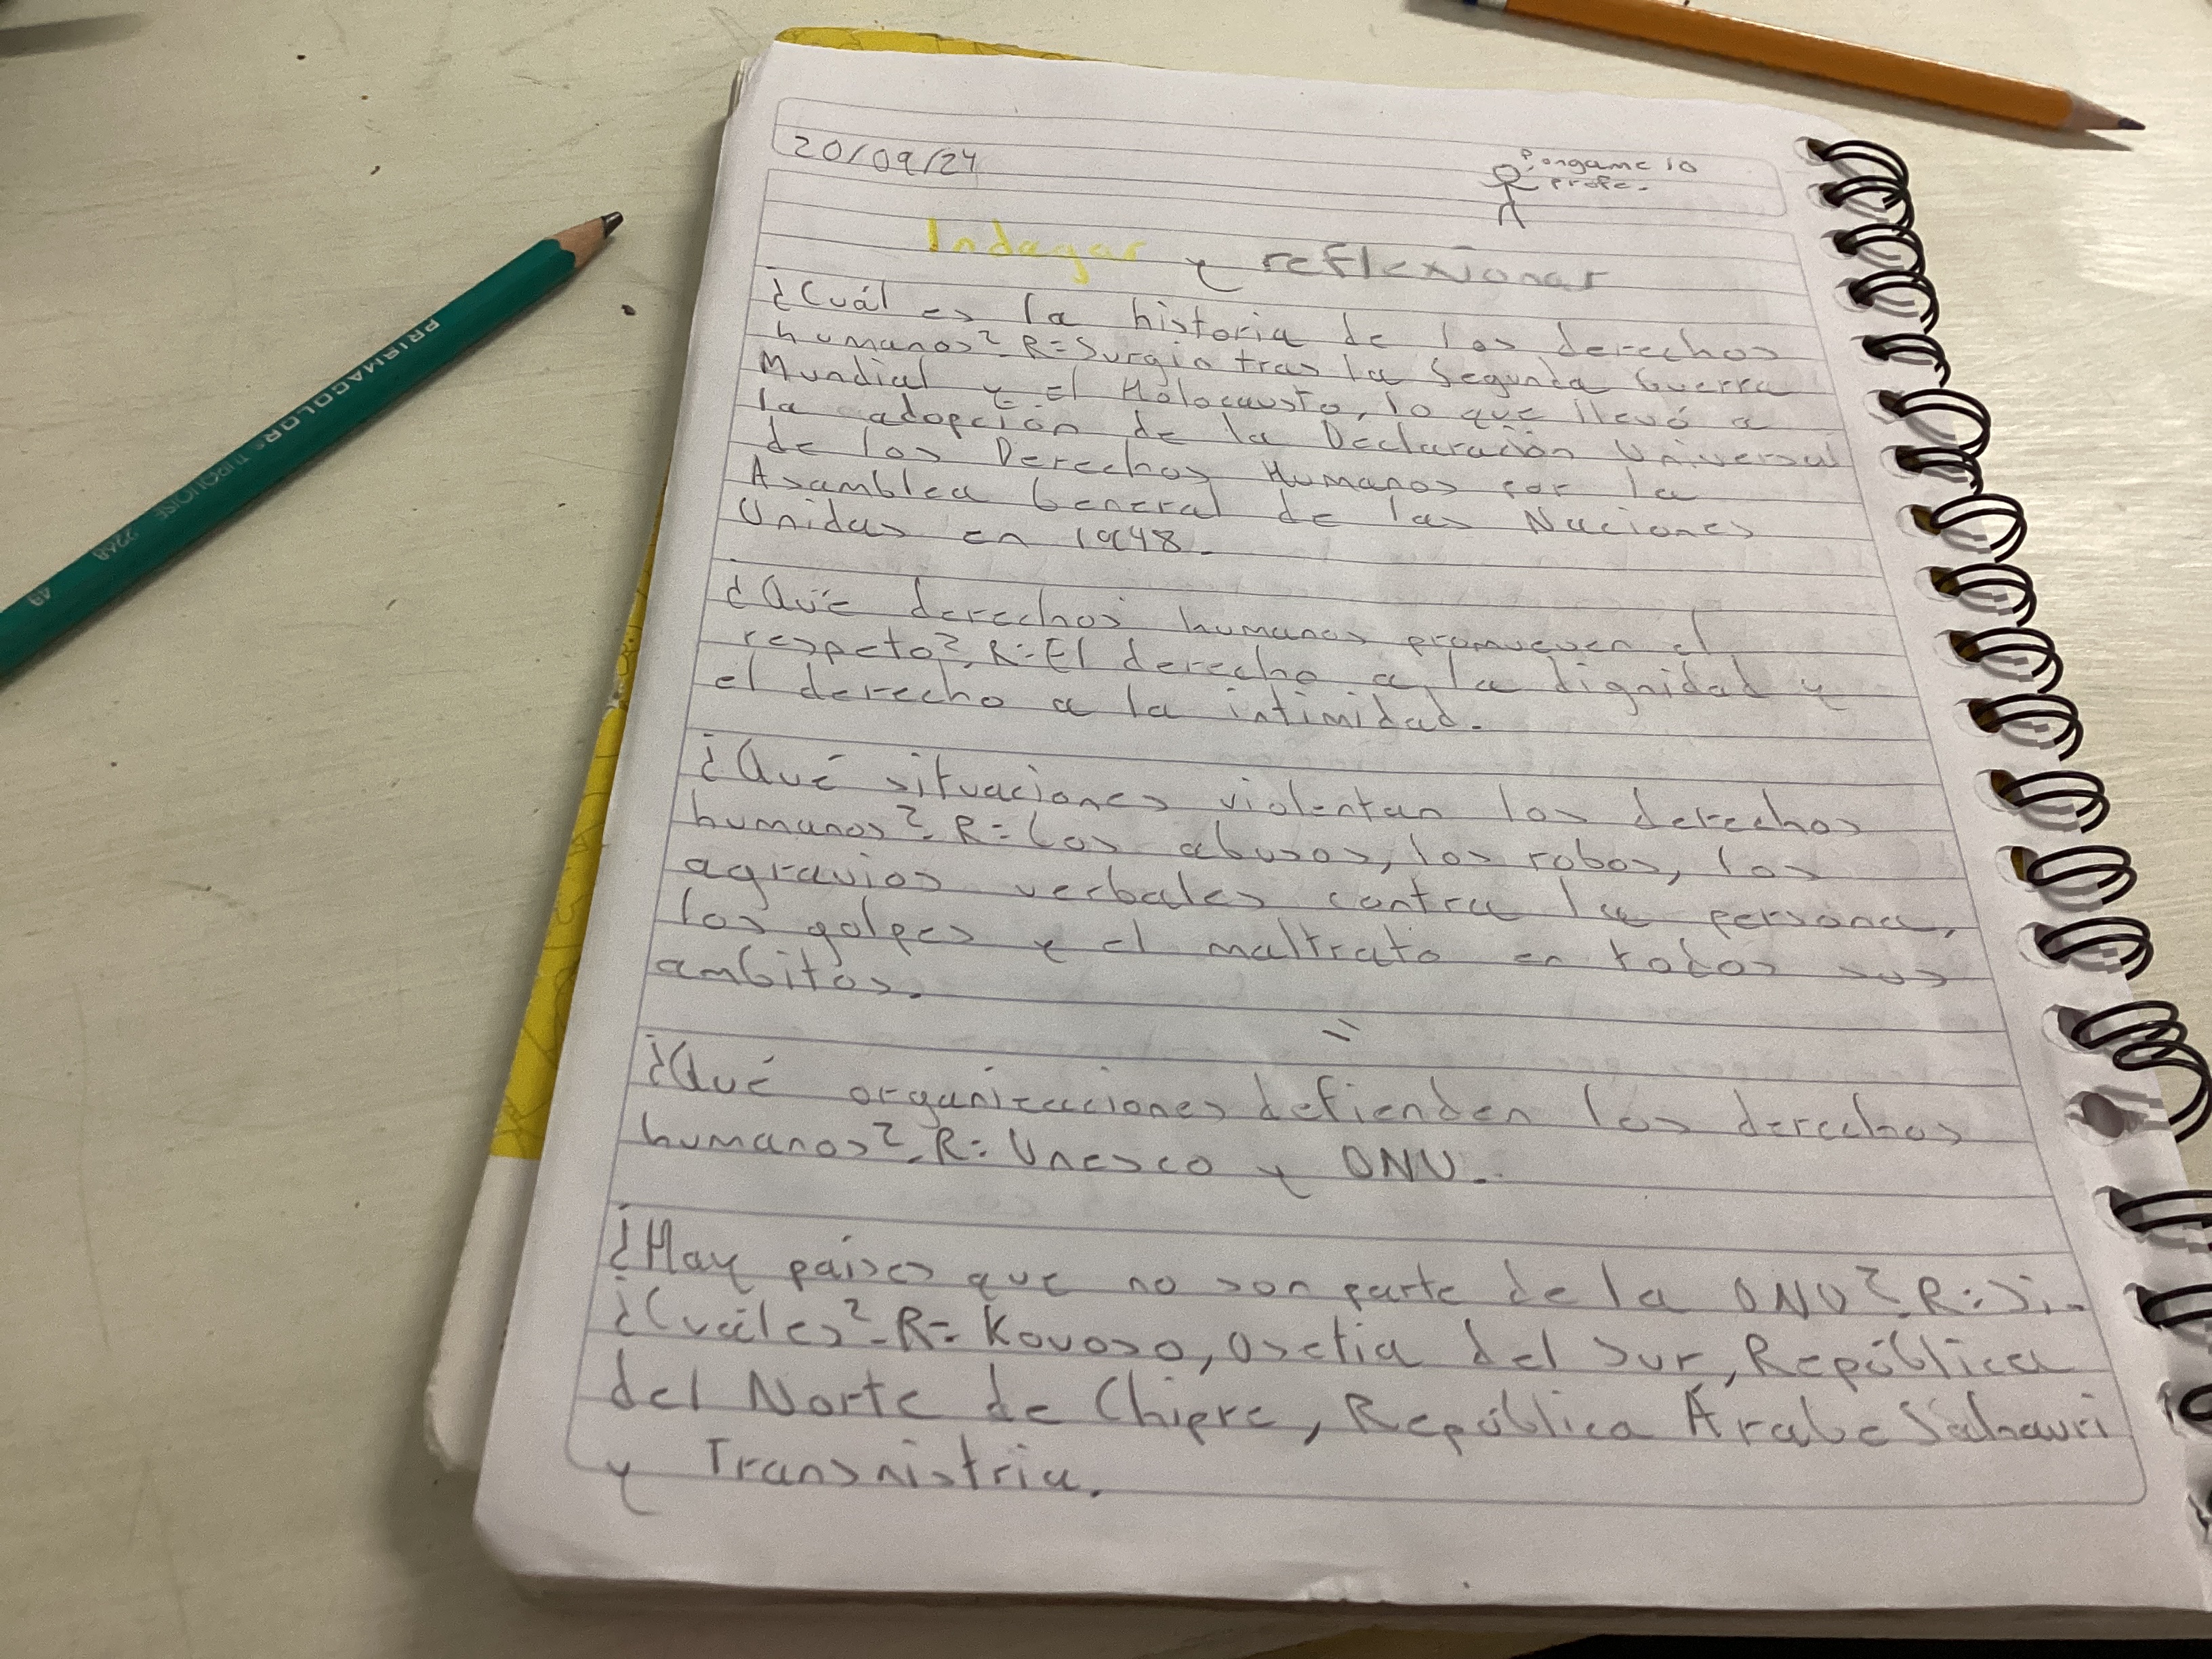 20/09/24
Pongame 10
profe.
Indagar y reflexionar
¿Cuál es la historia de los derechos
humanos?. R= Surgio tras la Segunda Guerra
Mundial y el Holocausto, lo que llevó a
la adopción de la Declaración Universal
de los Derechos Humanos por la
Asamblea General de las Naciones
Unidas en 1948.
¿Qué derechos humanos promueven el
respeto?. R= El derecho a la dignidad y
el derecho a la intimidad.
¿Qué situaciones violentan los derechos
humanos?. R= Los abusos, los robos, los
agravios verbales contra la persona,
los golpes y el maltrato en todos sus
ambitos.
¿Qué organizaciones defienden los derechos
humanos?. R= Unesco y ONU.
¿Hay países que no son parte de la ONU?. R= Si.
¿Cuáles?. R= Kovoso, Osetia del Sur, República
del Norte de Chipre, República Árabe Sahaui
y Transnistria.
PRISMACOLOR® TURQUOISE 2268 49